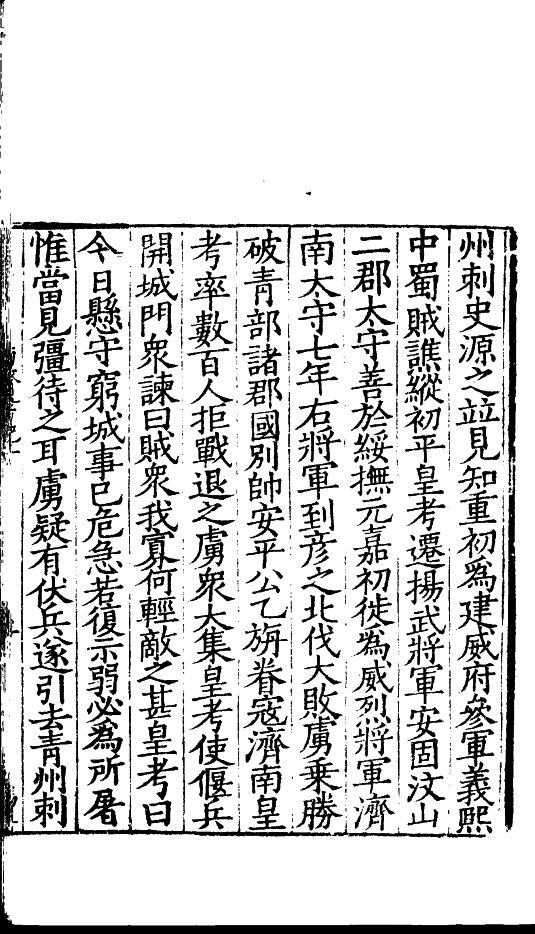 州刺史源之並見知重初爲建威府參軍義熙
中蜀賊譙縱初平皇考遷揚武將軍安固汶山
二郡太守善於綏撫元嘉初徙爲威烈將軍濟
南太守七年右將軍到彥之北伐大敗虜乗勝
破青部諸郡國別帥安平公乙旃眷寇濟南皇
考率數百人拒戰退之虜衆大集皇考使偃兵
開城門衆諫曰賊衆我寡何輕敵之甚皇考曰
今日懸守窮城事已危急若復示弱必爲所屠
惟當見彊待之耳虜疑有伏兵遂引去青州刺